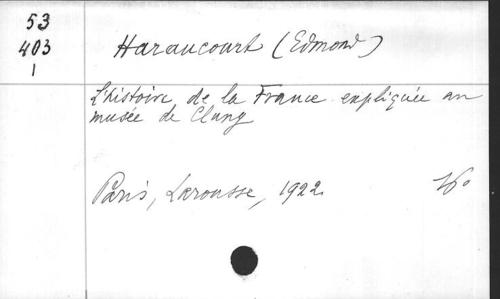 53
403
1
Haraucourt (Edmond)
L'histoire de la France expliquée au
musée de Cluny
Paris, Larousse, 1922
16°